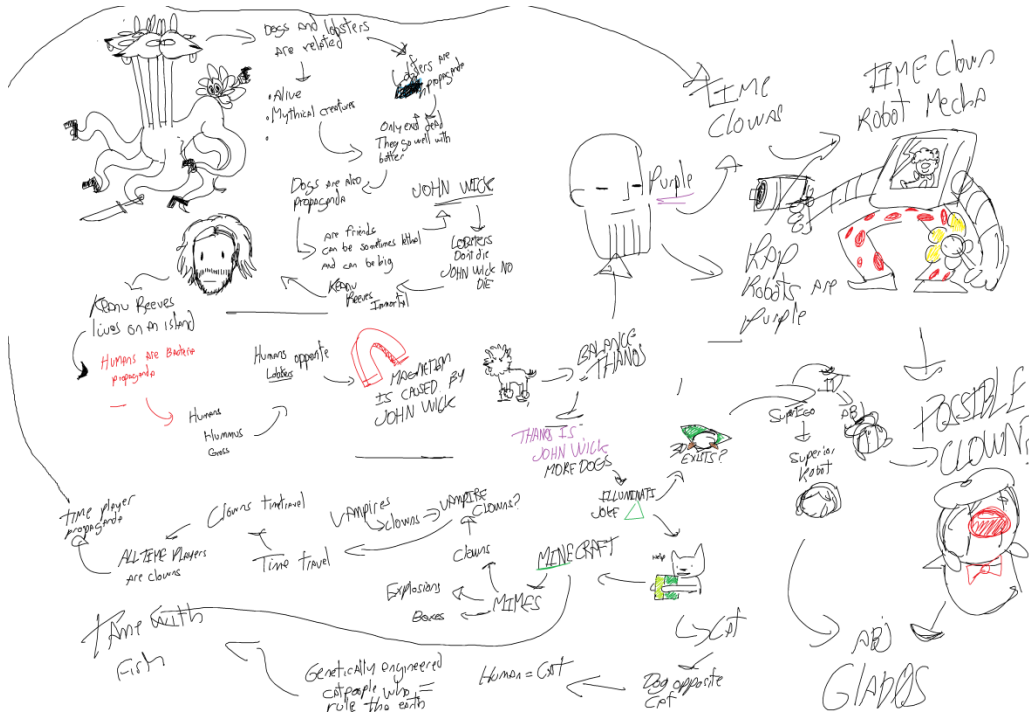 Dogs and lobsters
are related
• Alive
• Mythical creatures
•
Lobsters are
propaganda
Only exist dead
They go well with
butter
Dogs are also
propaganda
JOHN WICK
are friends
can be sometimes lethal
and can be big
LOBSTERS
Don't die
JOHN WICK NO
DIE
Keanu
Reeves
Immortal
Keanu Reeves
lives on an island
Humans are Bacteria
propaganda
Humans
Hummus
Grass
Humans opposite
Lobsters
MAGNETISM
IS CAUSED BY
JOHN WICK
BALANCE
THANOS
THANOS IS
JOHN WICK
MORE DOGS
ILLUMINATI
JOKE
3D
EXISTS?
Purple
TIME
CLOWNS
TIME Clown
Robot Mecha
RAP
Robots are
Purple
SuperEgo
Superior
Robot
ABJ
POSSIBLE
CLOWN?
ABJ
GLADOS
time player
propaganda
ALL TIME Players
are clowns
Clowns timetravel
Time travel
Vampires
clowns
VAMPIRE
CLOWNS?
Clowns
MINECRAFT
MIMES
Explosions
Boxes
Help
CAT
Dog opposite
Cat
Human = CAT
Genetically engineered
catpeople who
rule the earth
=
time with
Fish